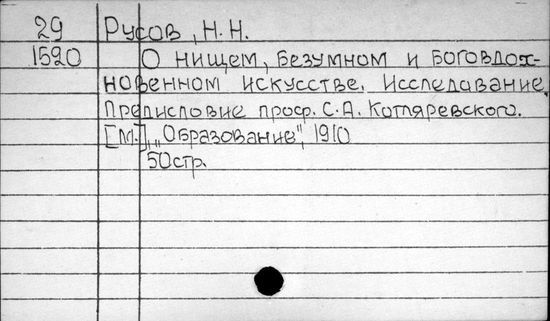 29 Русов, Н. Н.
1520 О нищем, безумном и боговдох-
новенном искусстве. Исследавание.
Предисловие проф. С. А. Котляревского.
[М.], „Образование", 1910
50стр.